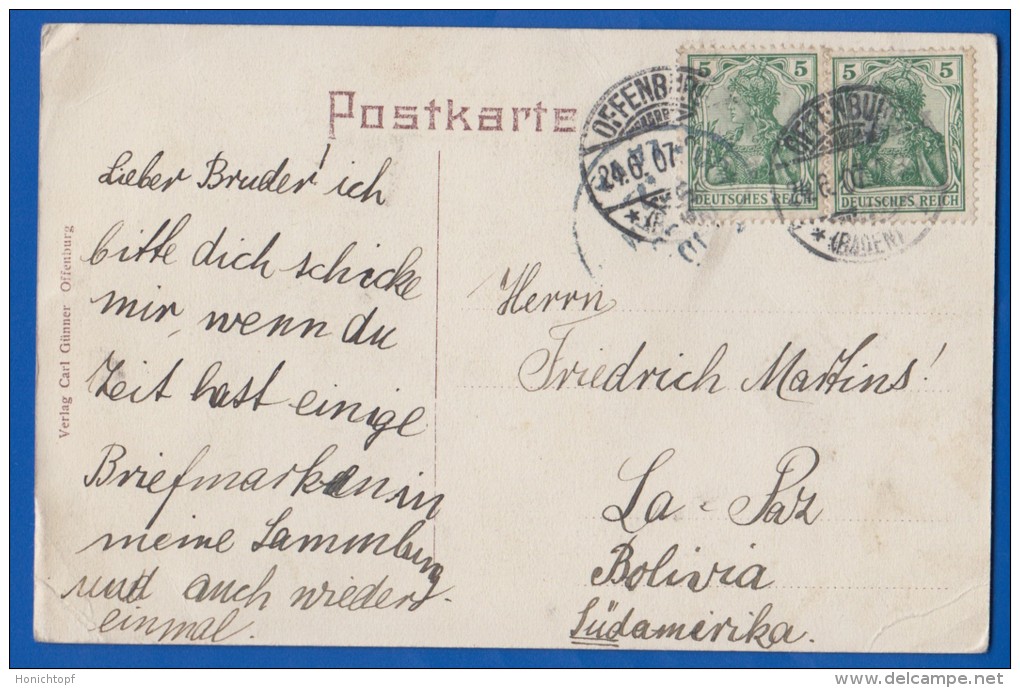 Postkarte
5 5
DEUTSCHES REICH
5 5
DEUTSCHES REICH
OFFENBURG
24.6.07
OFFENBURG
24.6.07
*(BADEN)
Verlag Carl Günner Offenburg
Lieber Bruder! ich
bitte dich schicke
mir, wenn du
Zeit hast einige
Briefmarken in
meine Sammlung
und auch wieder
einmal.
Herrn
Friedrich Martins!
La-Paz
Bolivia
Südamerika.
Honichtopf
www.delcampe.net